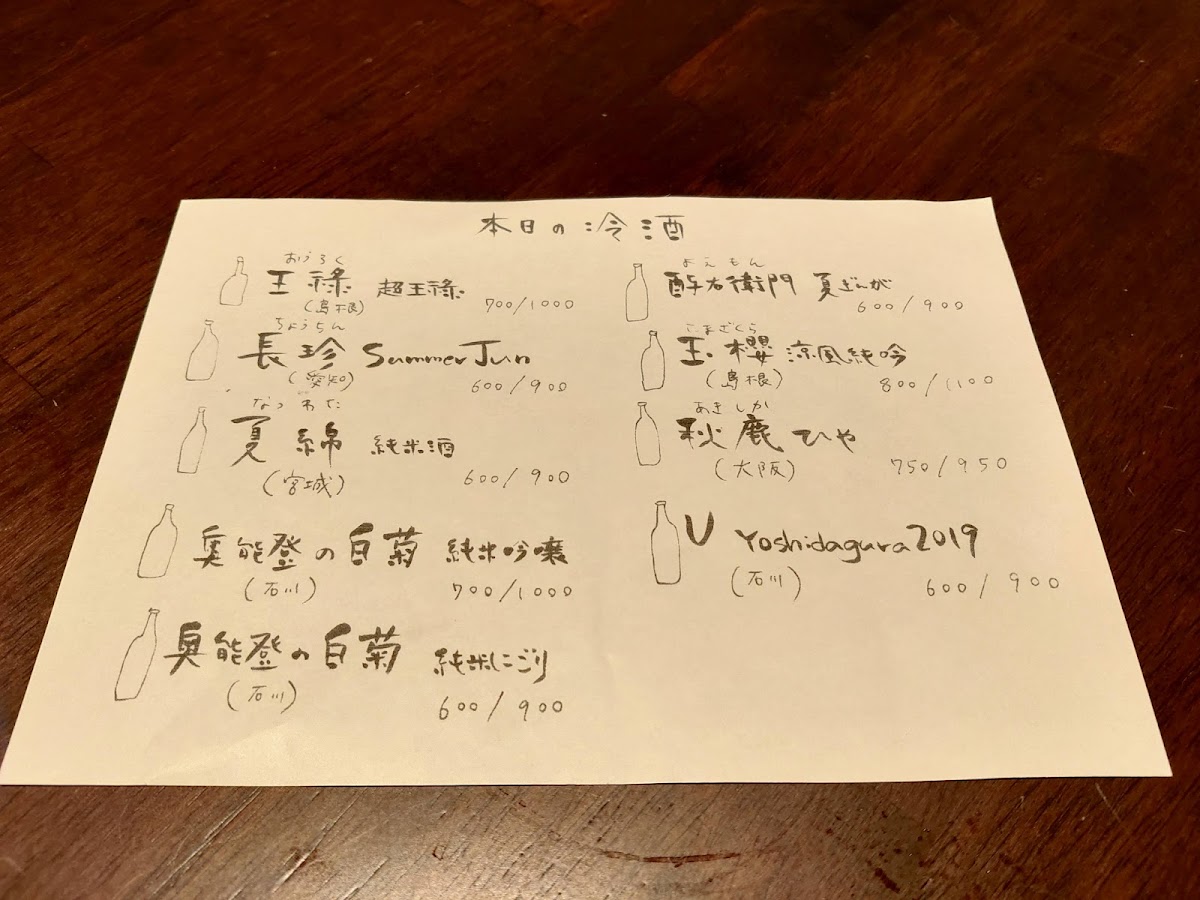 本日の冷酒
おうろく
王祿 超王祿
(島根) 700/1000
ちょうちん
長珍 Summer Jun
(愛知) 600/900
なつ わた
夏綿 純米酒
(宮城) 600/900
奥能登の白菊 純米吟醸
(石川) 700/1000
奥能登の白菊 純米にごり
(石川) 600/900
よえもん
酉与右衛門 夏ぎんが
600/900
こまざくら
玉櫻 涼風純吟
(島根) 800/1100
あきしか
秋鹿 ひや
(大阪) 750/950
U Yoshidagura2019
(石川) 600/900